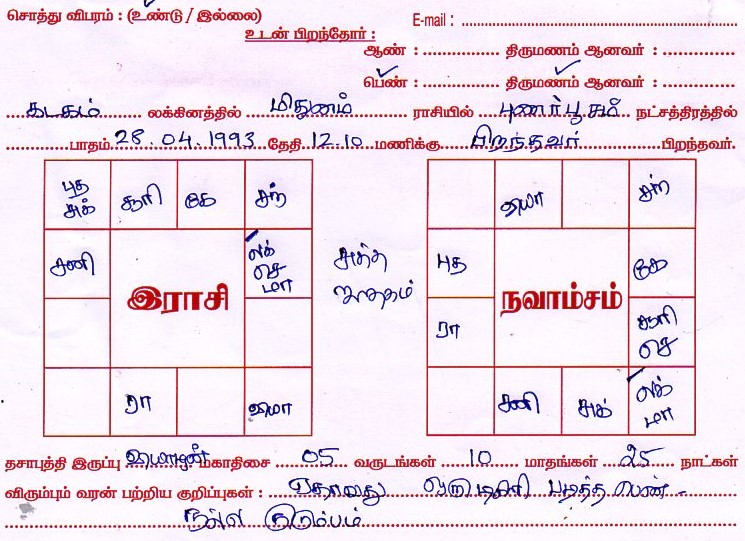 சொத்து விபரம் : (உண்டு / இல்லை)
E-mail :
உடன் பிறந்தோர் :
ஆண் : திருமணம் ஆனவர் :
பெண் : திருமணம் ஆனவர் :
கடகம் லக்கினத்தில் மிதுனம் ராசியில் புனர்பூசம் நட்சத்திரத்தில்
பாதம் 28.04.1993 தேதி 12.10 மணிக்கு பிறந்தவர் பிறந்தவர்.
புத சூரி கே சந்
சுக்
சனி லக்
செ
மா
இராசி
ரா வியா
சுத்த
ஜாதகம்
வியா சந்
புத கே
நவாம்சம்
ரா சூரி
செ
சனி சுக் லக்
மா
தசாபுத்தி இருப்பு வியாழன் மகாதிசை 05 வருடங்கள் 10 மாதங்கள் 25 நாட்கள்
விரும்பும் வரன் பற்றிய குறிப்புகள் : ஏதாவது ஒரு டிகிரி படித்த பெண் -
நல்ல குடும்பம்